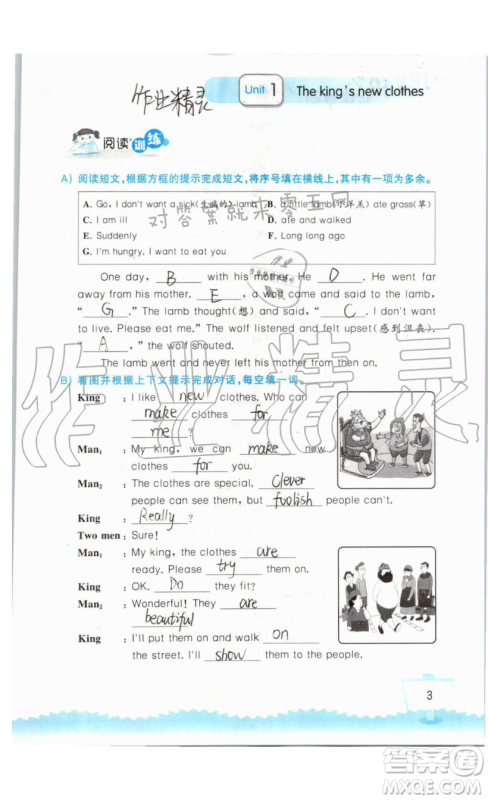 Unit 1 The king's new clothes
作业精灵
阅读训练
A) 阅读短文,根据方框的提示完成短文,将序号填在横线上,其中有一项为多余。
A. Go. I don't want a sick(生病的) lamb B. a little lamb(小羊羔) ate grass(草)
C. I am ill D. ate and walked
对答案就来零五网
E. Suddenly F. Long long ago
G. I'm hungry. I want to eat you
One day, B with his mother. He D. He went far
away from his mother. E, a wolf came to the lamb,
" G ." The lamb thought(想) and said, " C . I don't want
to live. Please eat me." The wolf listened and felt upset(感到沮丧).
" A ", the wolf shouted.
The lamb went and never left his mother from then on.
B) 看图并根据上下文提示完成对话,每空填一词。
King : I like new clothes. Who can
make clothes for
me ?
Man1 : My king, we can make new
clothes for you.
Man2 : The clothes are special. Clever
people can see them, but foolish people can't.
King : Really?
Two men: Sure!
Man1 : My king, the clothes are
ready. Please try them on.
King : OK. Do they fit?
Man2 : Wonderful! They are
beautiful
King : I'll put them on and walk on
the street. I'll show them to the people.
3
作业精灵
答案圈
MXQE.COM